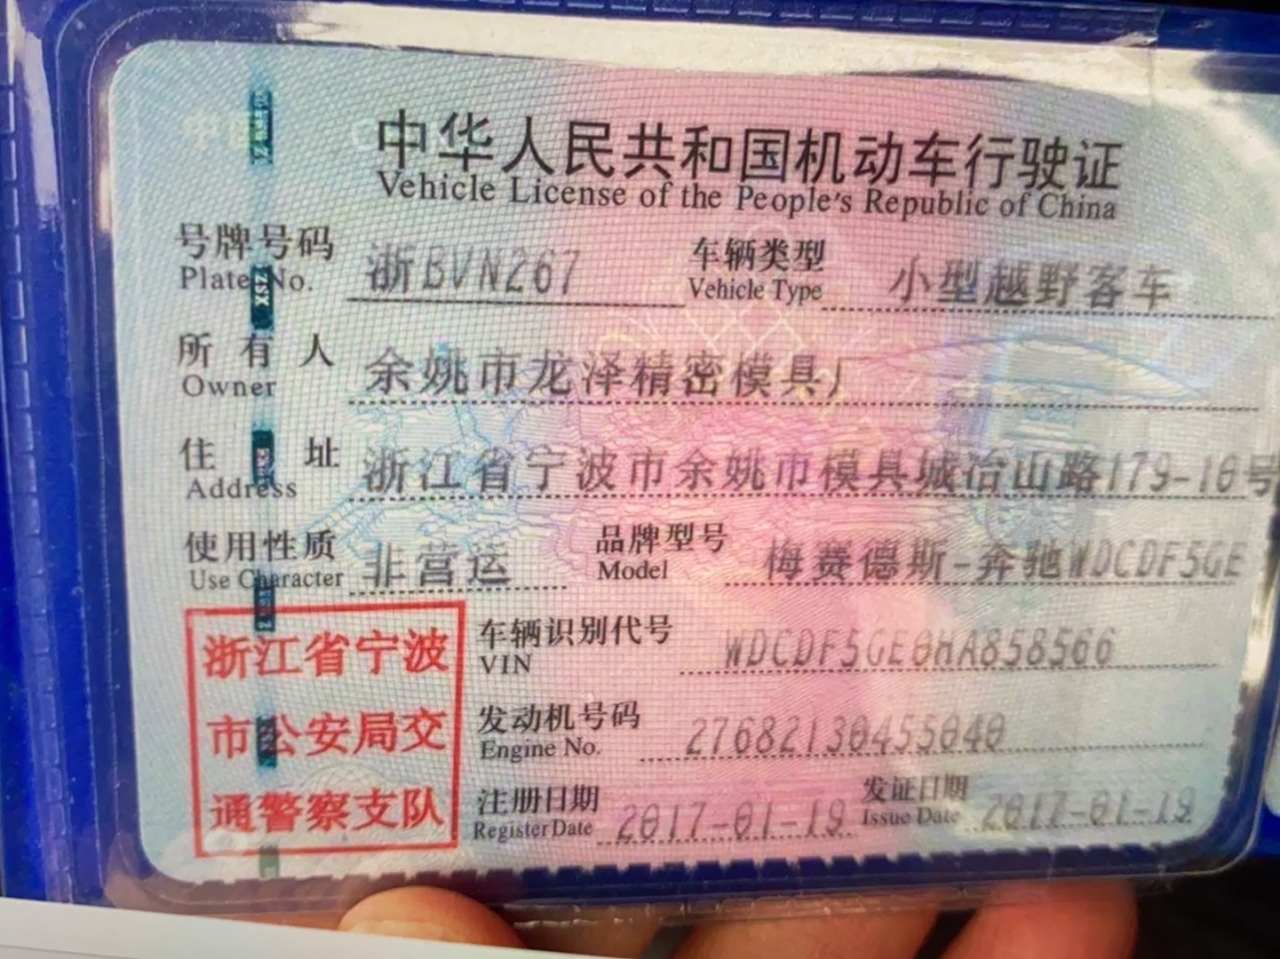 中华人民共和国机动车行驶证
Vehicle License of the People's Republic of China
号牌号码 浙BVN267 车辆类型 小型越野客车
Plate No. Vehicle Type
所有人 余姚市龙泽精密模具厂
Owner
住址 浙江省宁波市余姚市模具城冶山路179-10号
Address
使用性质 非营运 品牌型号 梅赛德斯-奔驰WDCDF5GE
Use Character Model
浙江省宁波
市公安局交
通警察支队
车辆识别代号 WDCDF5GE0HA858566
VIN
发动机号码 27682130455040
Engine No.
注册日期 2017-01-19 发证日期 2017-01-19
Register Date Issue Date